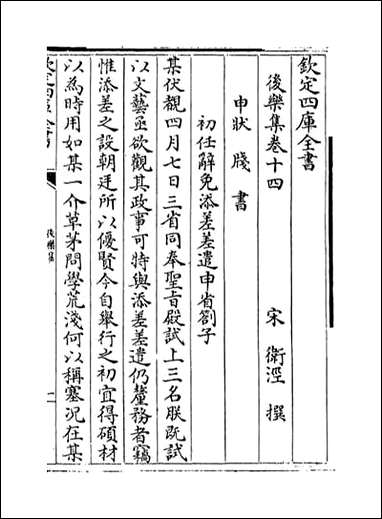 欽定四庫全書
後樂集卷十四
宋 衛涇 撰
申狀 牋 書
初任辭免添差差遣申省劄子
某伏覩四月七日三省同奉聖㫖殿試上三名朕既試
以文藝亟欲觀其政事可特與添差差遣仍釐務者竊
惟添差之設朝廷所以優賢今自舉行之初宜得碩材
以為時用如某一介草茅問學荒淺何以稱塞況在某
欽定四庫全書
後樂集
一